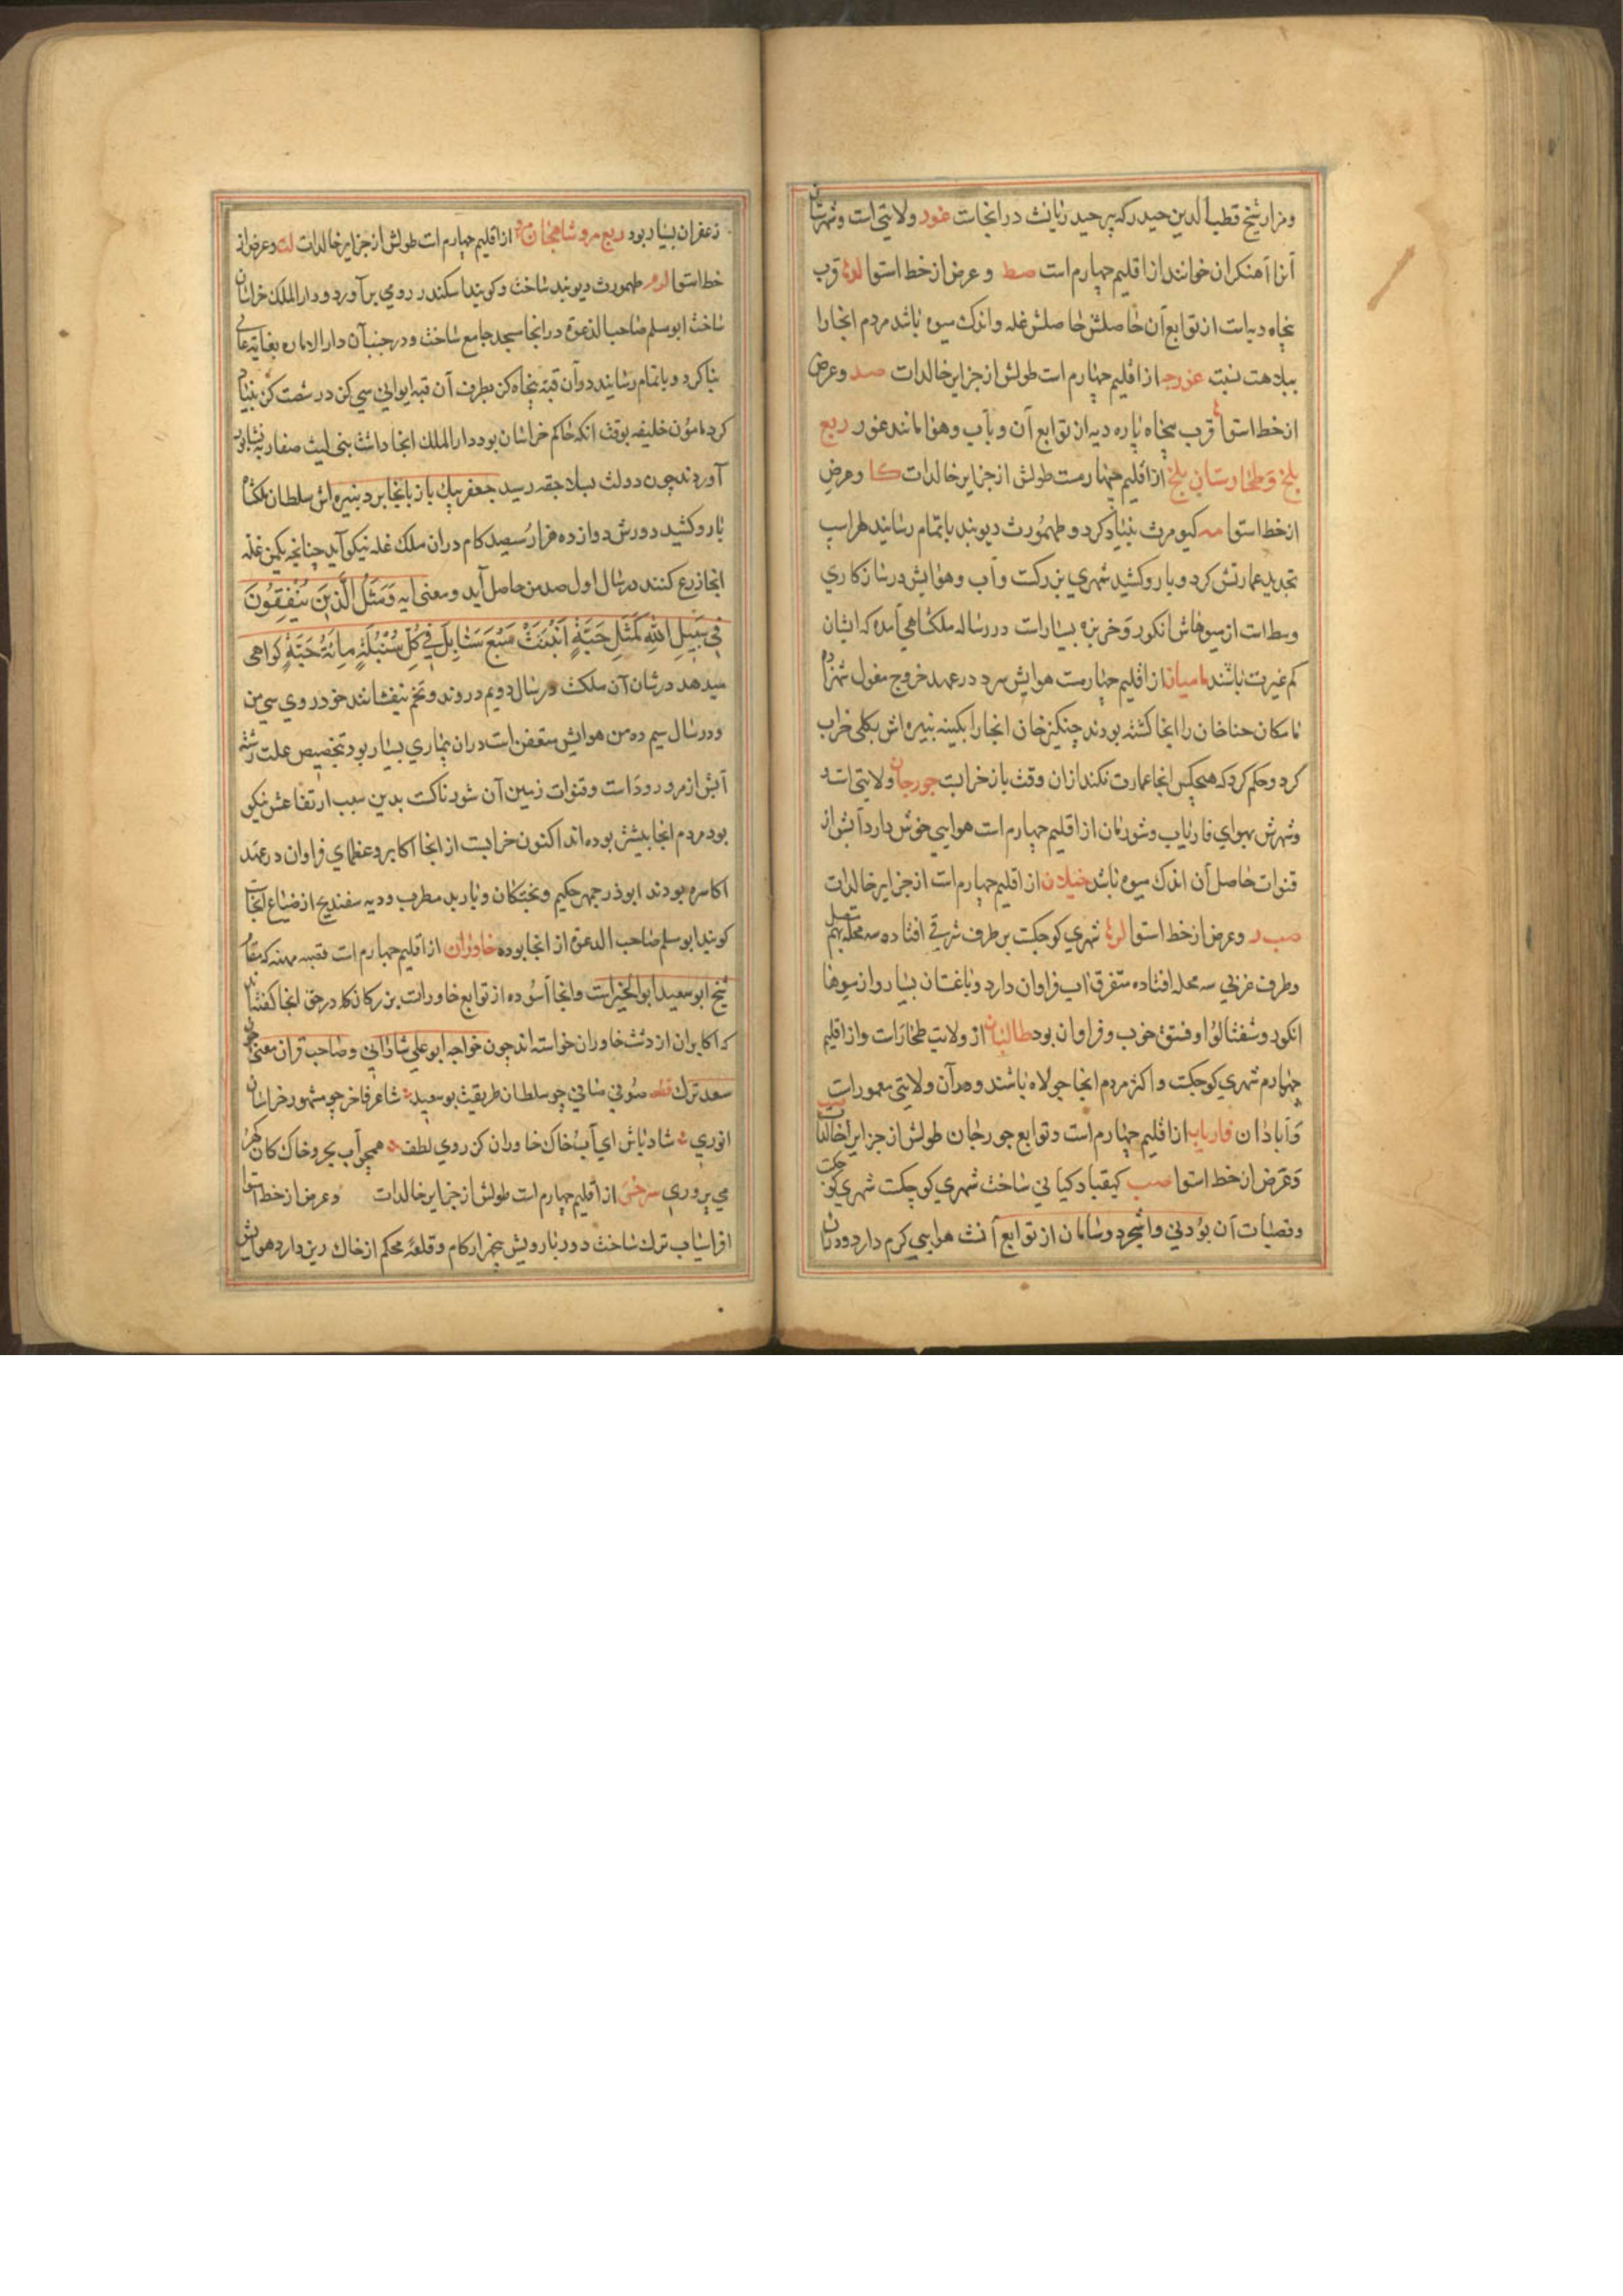 ومزار شیخ قطب الدین حیدر که پیر حیدریانست در انجاست غور ولایتی است وشهرستان
آنرا آهنکران خوانند از اقلیم چهارم است صط وعرض از خط استوا لدما قرب
پنجاه دیه است از توابع آن حاصلش حاصلش غله واندک میوه باشد مردم انجا را
ببلاهت نسبت غزرجه از اقلیم چهارم است طولش از جزایر خالدات صد وعرض
از خط استوا قرب پنجاه پاره دیه از توابع آن وبآب وهوا مانند غور ربع
بلخ وطخارستان بلخ از اقلیم چهارمست طولش از جزایر خالدات کا وعرض
از خط استوا مه کیومرث بنیاد کرد وطهمورث دیوبند باتمام رسانید لهراسپ
تجدید عمارتش کرد وبارو کشید شهری بزرکت وآب وهوایش درسازکاری
وسط است از میوهاش انکور وخربزه بسیارات در رساله ملکشاهی آمده که ایشان
کم غیرت باشند بامیان از اقلیم چهارمست هوایش سرد در عهد خروج مغول شهزاده
خان را انجا کشته بودند چنکیز خان انجا را بکینه نبیره اش بکلی خراب
کرد وحکم کرد که هیچکس انجا عمارت نکند ازان وقت باز خرابت جورجان ولایتی است
وشهرش بهوای فاریاب وشورتان از اقلیم چهارم است هوایی خوش دارد آبش از
قنوات حاصل آن اندک میوه باشد ختلان از اقلیم چهارم است از جزایر خالدات
صب ر وعرض از خط استوا لرنا شهری کوچکت بر طرف شرقی افتاده سه محله بهم متصل
وطرف غربی سه محله افتاده متفرق اب فراوان دارد وباغستان بسیار واز میوها
انکور وشفتالو وفستق خوب وفراوان بود طالقان از ولایت طخارات واز اقلیم
چهارم شهری کوچکت واکثر مردم انجا جولاه باشند ودران ولایتی معمورات
وآبادان فاریاب از اقلیم چهارم است وتوابع جورجان طولش از جزایر خالدات
وعرض از خط استوا صب کیقباد کیانی ساخت شهری کوچکت شهری کوچکت
وقصبات آن بودنی واشجرد وسامان از توابع آنست هوایی کرم دارد ودران
زعفران بسیار بود ربع مرو شاهجان مرو از اقلیم چهارم است طولش از جزایر خالدات لت وعرض از
خط استوا لرم طهمورث دیوبند ساخت وکویند اسکندر رومی برآورد ودار الملک خراسان
ساخت ابو مسلم صاحب الدعوة در انجا مسجد جامع ساخت ودر جنب آن دار الاماره بغایت عالی
بنا کرد وباتمام رسانید ودر آن قبه پنجاه کز بطرف آن قبه ایوانی سی کز در شصت کز بنیاد
کرد مامون خلیفه بوقت انکه حاکم خراسان بود دار الملک انجا داشت بنی لیث صفار به نیشابور
آوردند چون دولت بسلاجقه رسید جعفر بیک باز بانجا برد نبیره اش سلطان ملکشاه
بارو کشید دورش دوازده هزار سیصد کام دران ملک غله نیکو آید چنانچه یکمن غله
انجا زرع کنند در سال اول صد من حاصل آید ومعنی ایه وَمَثَلُ الَّذِینَ یُنْفِقُونَ
فِی سَبِیلِ اللّٰهِ کَمَثَلِ حَبَّةٍ اَنْبَتَتْ سَبْعَ سَنَابِلَ فِی کُلِّ سُنْبُلَةٍ مِائَةُ حَبَّةٍ کواهی
میدهد در شان آن ملکت در سال دویم دروند وتخم نیفشانند خود روی سی من
ودر سال سیم ده من هوایش متعفن است دران بیماری بسیار بود تخصیص علت رشته
آبش از مرو رودات وقنوات زمین آن شورناکت بدین سبب ارتفاعش نیکو
بود مردم انجا بیشتر بوده اند اکنون خرابست از انجا اکابر وعظمای فراوان در عهد
اکاسره بودند ابوذرجمهر حکیم وبختکان وباربد مطرب ودیه سفندیج از ضیاع انجاست
کویند ابو مسلم صاحب الدعوة از انجا بوده خاوران از اقلیم چهارم است قصبه مهنه که مقام
شیخ ابو سعید ابو الخیرات وانجا آسوده از توابع خاورات بزرکان که در حق انجا کفته اند
که اکابران از دشت خاوران خواسته اند چون خواجه ابو علی شادانی وصاحب قران معنی چون
سعد ترک قطعه صوفی صافی چو سلطان طریقت بو سعید شاعر فاخر چو مشهور خراسان
انوری شاد باش ای آب خاک خاوران کز روی لطف همچو آب بحر وخاک کان کهر
می پروری سرخس از اقلیم چهارم است طولش از جزایر خالدات وعرض از خط استوا
افراسیاب ترک ساخت دور بارویش پنجهزار کام وقلعه محکم از خاک ریز دارد هوایش